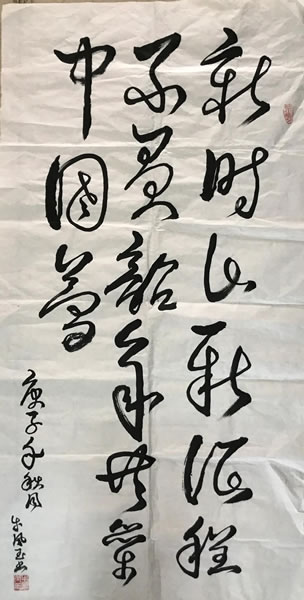 新时代新征程
不負韶华共築
中國夢
庚子年秋月